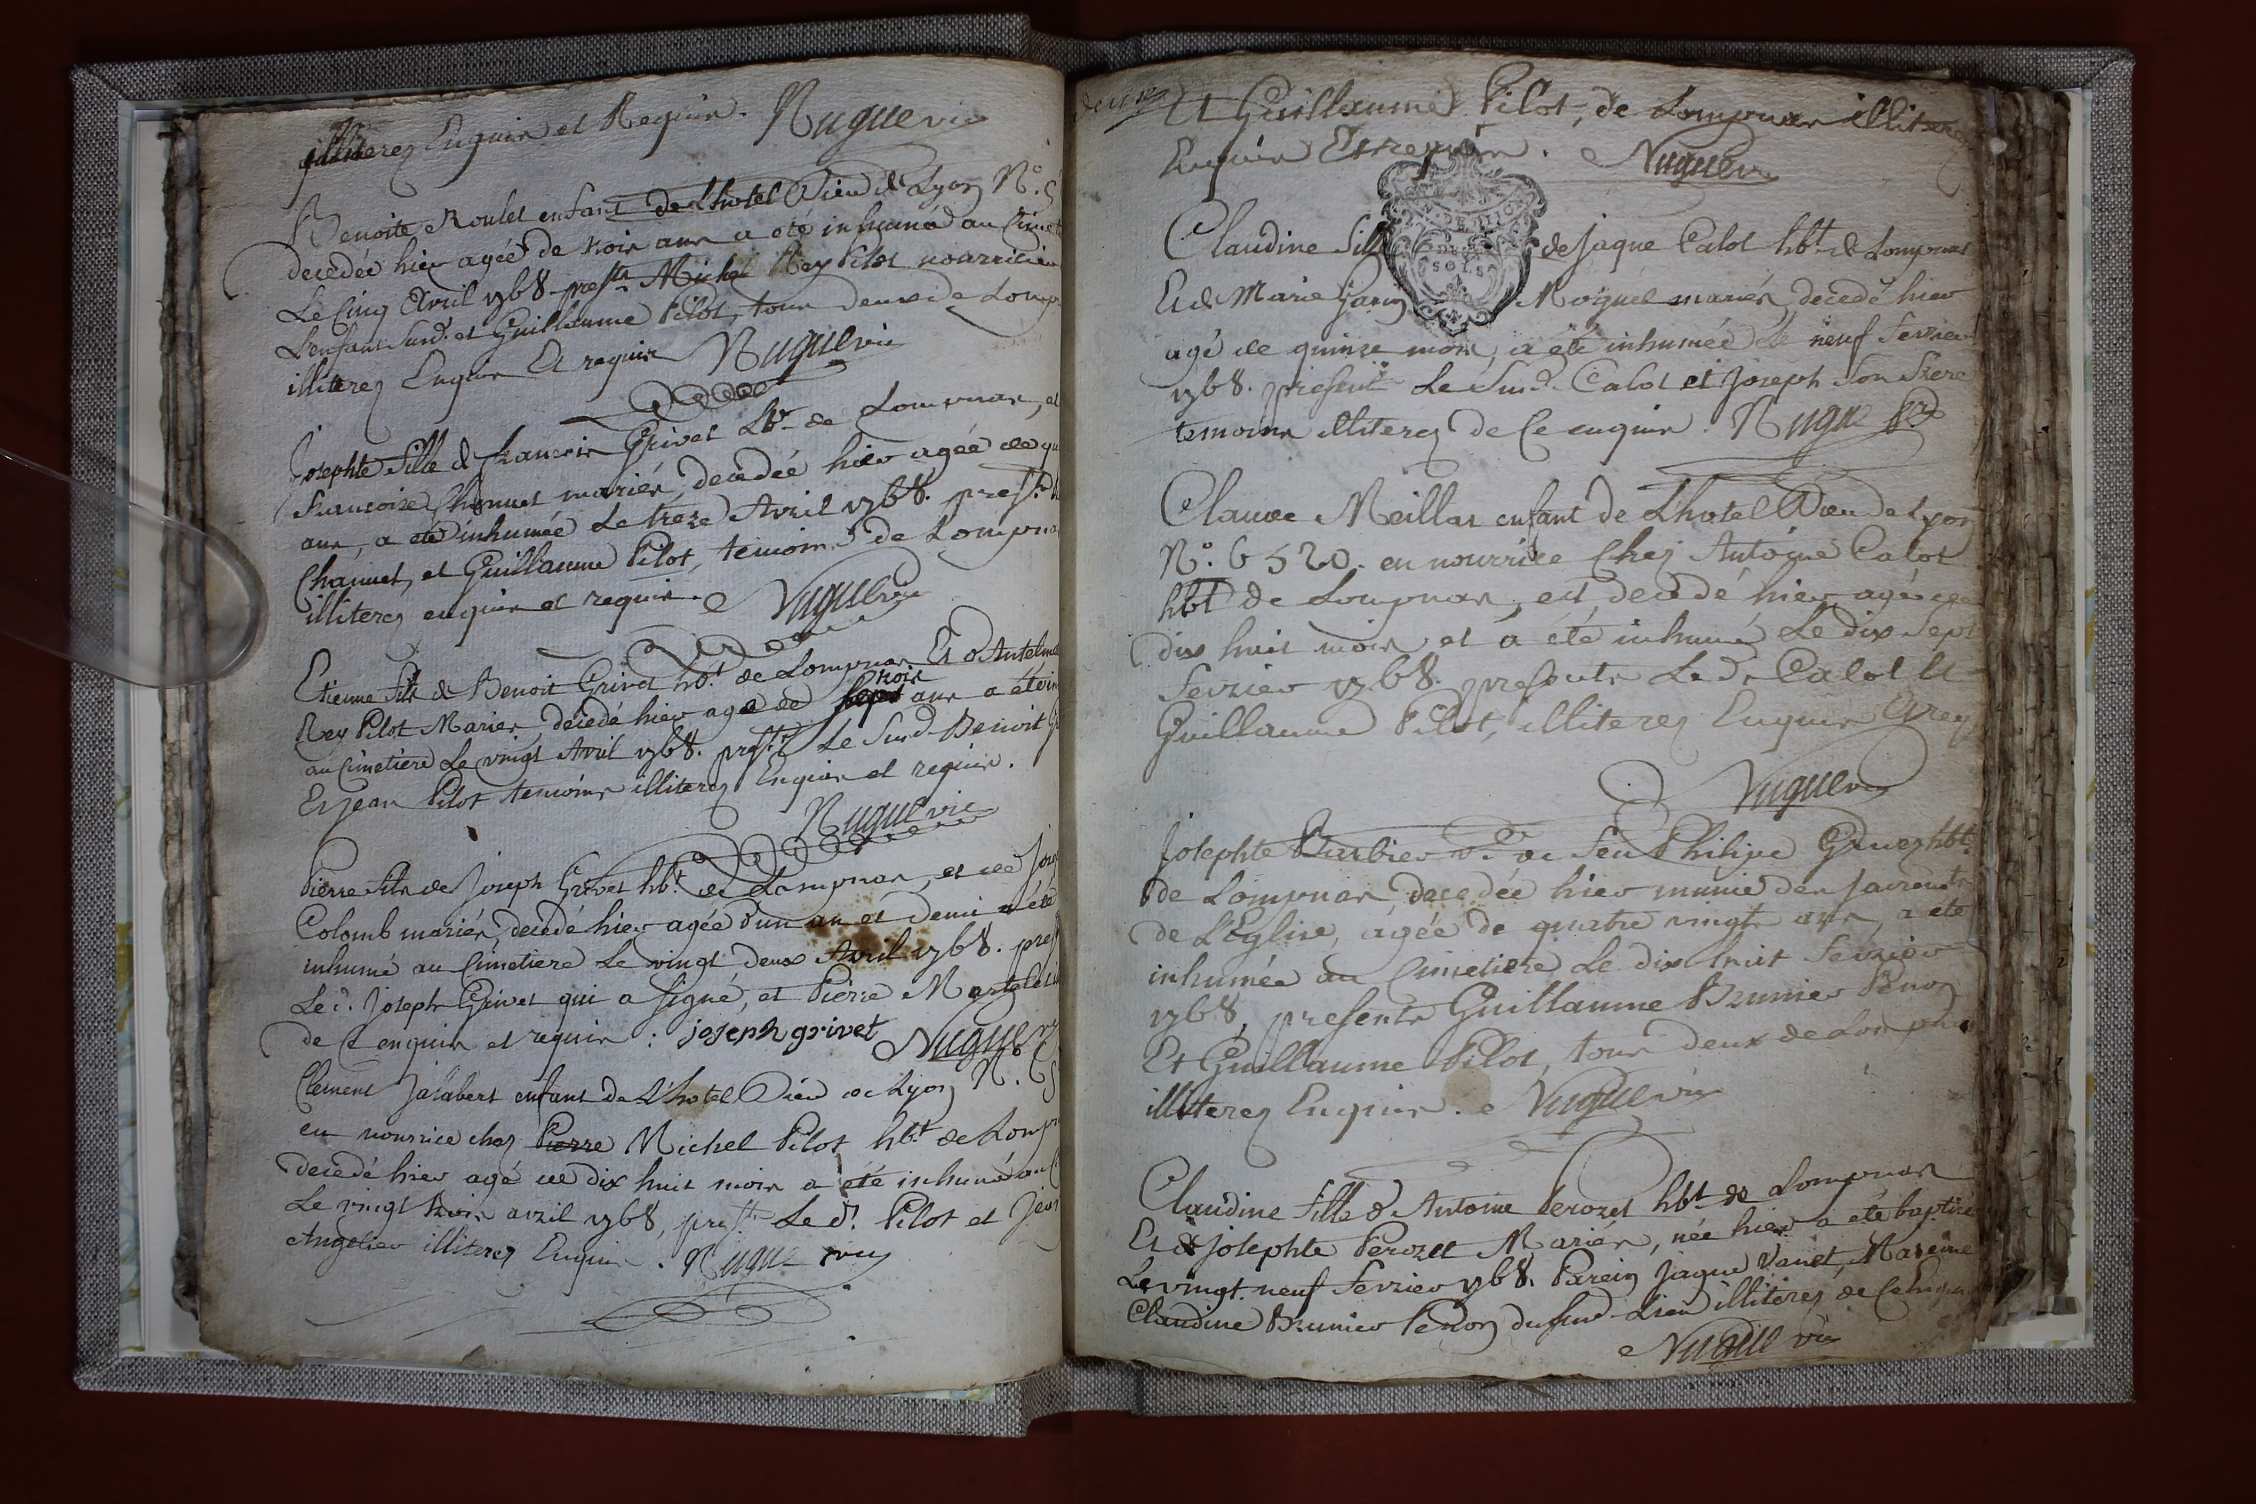 illiterez Enquis et Requis. Nugue vic
Benoite Roulet enfant de Lhotel Dieu de Lyon N.º
decedée hier agée de trois ans a eté inhumée au Cimet
Le Cinq Avril 1768. prests Michel Rey Pilot nourricier
L'enfant susd. et Guillaume Pilot, tous deux de Lomp
illiterez Enquis Et requis Nugue vic
Josephte fille de francois Grivet hbt de Lompnas, et
francoise Chanuet mariés, decedée hier agée de qu
ans, a eté inhumée Le treze Avril 1768. prests
Chanuet, et Guillaume Pilot, temoins de Lompna
illiterez enquis et requis. Nugue vic
Etienne fils de Benoit Grivet hbt de Lompnas Et d'Antelme
trois
Rey Pilot Mariés, decedé hier agé de sept ans a eté in
au Cimetiere Le vingt Avril 1768. prests Le susd. Benoit G
Et jean Pilot temoins illiterez Enquis et requis.
Nugue vic
Pierre fils de Joseph Grivet hbt de Lompnas, et de Jos
Colomb mariés, decedé hier agée d'un an et demi a eté
inhumé au Cimetiere Le vingt deux Avril 1768. prest
Le d. Joseph Grivet qui a signé, et Pierre Martelet
de Ce enquis et requis : joseph grivet Nugue
Clement Jalabert enfant de L'hotel Dieu de Lyon N.º 65
en nourrice chez Pierre Michel Pilot hbt de Lompn
decedé hier agé de dix huit mois a été inhumé au C
Le vingt trois avril 1768, prests Le d. Pilot et Jean
Angelier illiterez Enquis. Nugue vic
Et Guillaume Pilot, de Lompnas illiterez
Enquis Et requis. Nugue vic
GEN. DE DIJON
DEUX
SOLS
Claudine fille de Jaque Calot hbt de Lompnas
Et de Marie Moiguel mariés, decedé hier
agé de quinze mois, a été inhumée Le neuf fevrier
1768. presents Le Susd. Calot et Joseph son frere
temoins illiterez de Ce enquis. Nugue
Claude Meillar enfant de L'hotel Dieu de Lyon
N.º 6520. en nourrice Chez Antoine Calot
hbt de Lompnas, est decedé hier agé de
dix huit mois et a été inhumé Le dix Sept
fevrier 1768. presents Le d. Calot Et
Guillaume Pilot, illiterez Enquis Et req
Nugue vic
Josephte Barbier ve de feu Philipe Grivet hbt
de Lompnas, decedée hier munie des sacrements
de L'Eglise, agée de quatre vingt ans, a eté
inhumée au Cimetiere Le dix huit fevrier
1768, presents Guillaume Brunier Penon
Et Guillaume Pilot, tous deux de Lompnas
illiterez Enquis. Nugue vic
Claudine fille d'Antoine Perozet hbt de Lompnas
Et de Josephte Perozet Mariés, née hier a eté baptisée
Le vingt neuf fevrier 1768. Parein Jaque Venet, Mareine
Claudine Brunier Penon du susd. Lieu illiterez de Ce enquis
Nugue vic